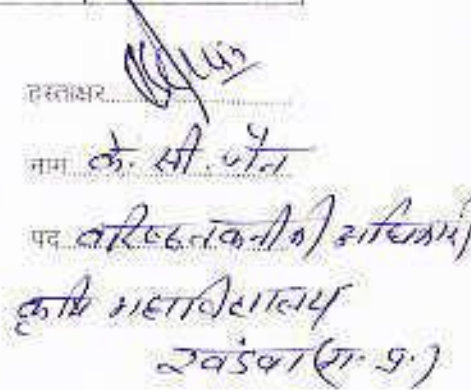 हस्ताक्षर
नाम के. सी. जैन
पद वरिष्ठ तकनीकी अधिकारी
कृषि महाविद्यालय
खंडवा (म. प्र.)